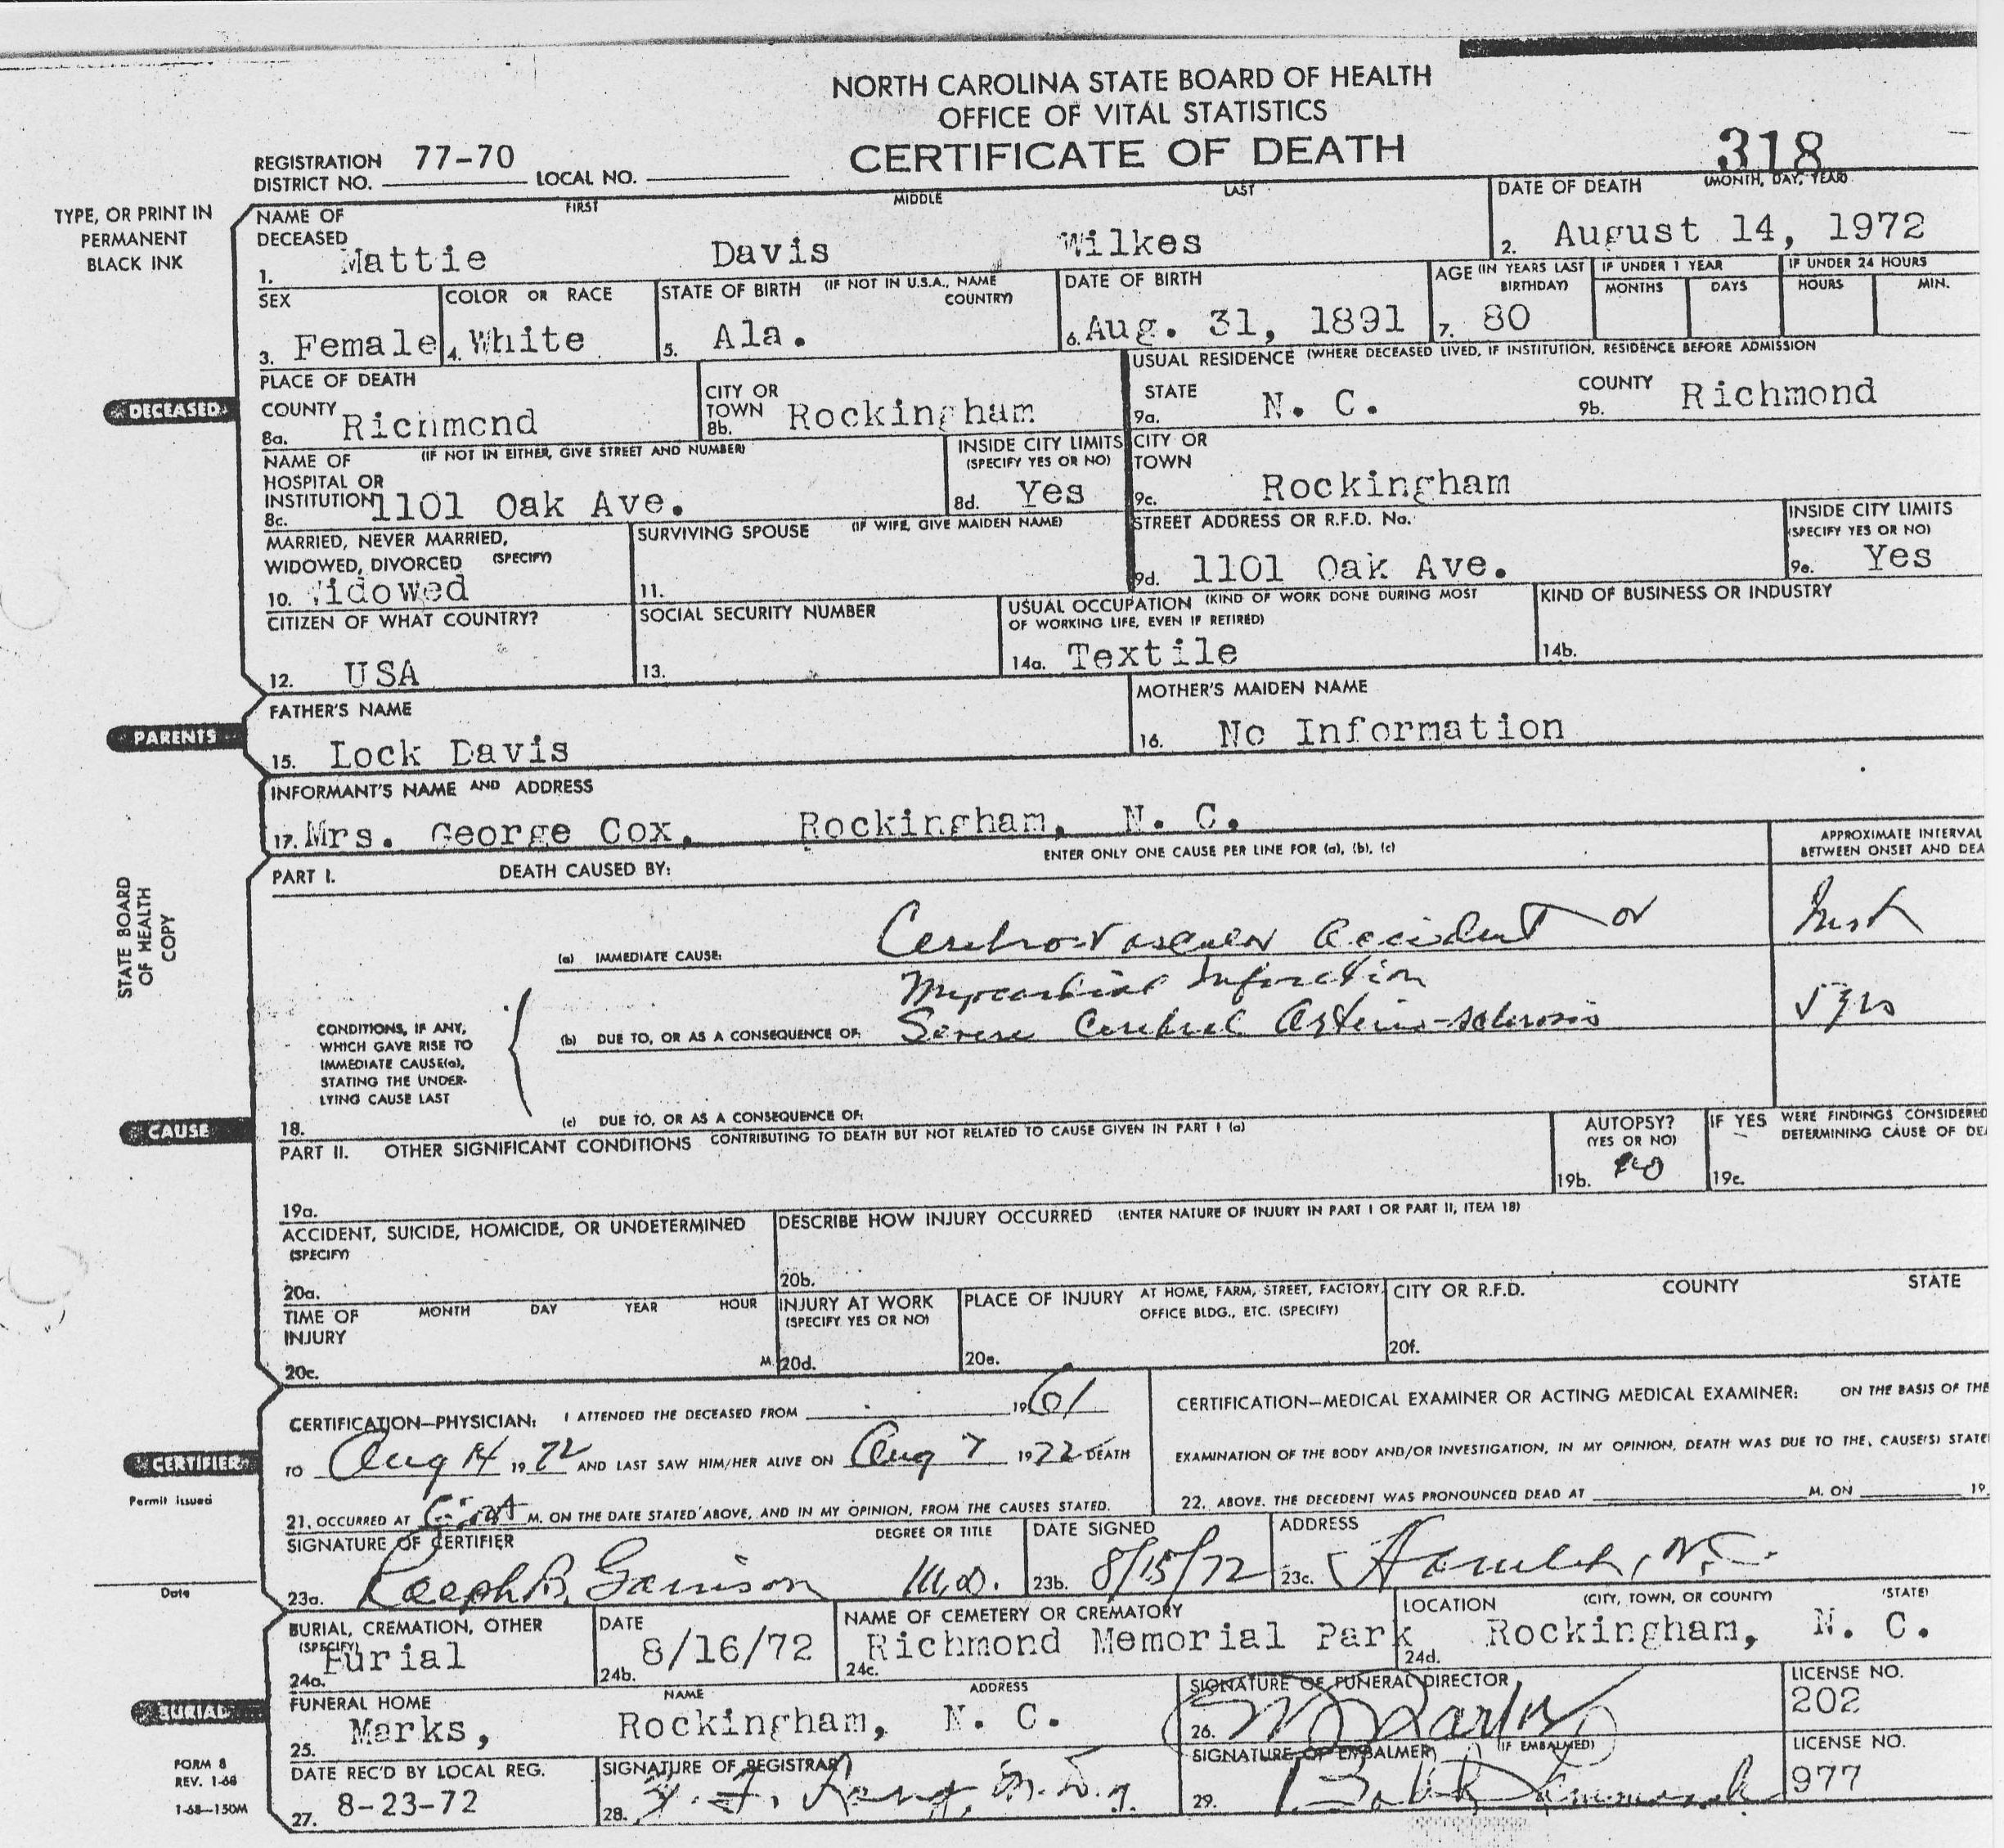 NORTH CAROLINA STATE BOARD OF HEALTH
OFFICE OF VITAL STATISTICS
CERTIFICATE OF DEATH
318
REGISTRATION DISTRICT NO. 77-70 LOCAL NO.
TYPE, OR PRINT IN PERMANENT BLACK INK
NAME OF DECEASED FIRST MIDDLE LAST
1. Mattie Davis Wilkes
DATE OF DEATH (MONTH, DAY, YEAR)
2. August 14, 1972
SEX
3. Female
COLOR OR RACE
4. White
STATE OF BIRTH (IF NOT IN U.S.A., NAME COUNTRY)
5. Ala.
DATE OF BIRTH
6. Aug. 31, 1891
AGE (IN YEARS LAST BIRTHDAY)
7. 80
IF UNDER 1 YEAR
MONTHS DAYS
IF UNDER 24 HOURS
HOURS MIN.
DECEASED
PLACE OF DEATH
COUNTY
8a. Richmond
CITY OR TOWN
8b. Rockingham
USUAL RESIDENCE (WHERE DECEASED LIVED, IF INSTITUTION, RESIDENCE BEFORE ADMISSION
STATE
9a. N. C.
COUNTY
9b. Richmond
NAME OF HOSPITAL OR INSTITUTION (IF NOT IN EITHER, GIVE STREET AND NUMBER)
8c. 1101 Oak Ave.
INSIDE CITY LIMITS (SPECIFY YES OR NO)
8d. Yes
CITY OR TOWN
9c. Rockingham
MARRIED, NEVER MARRIED, WIDOWED, DIVORCED (SPECIFY)
10. Widowed
SURVIVING SPOUSE (IF WIFE, GIVE MAIDEN NAME)
11.
STREET ADDRESS OR R.F.D. No.
9d. 1101 Oak Ave.
INSIDE CITY LIMITS (SPECIFY YES OR NO)
9e. Yes
CITIZEN OF WHAT COUNTRY?
12. USA
SOCIAL SECURITY NUMBER
13.
USUAL OCCUPATION (KIND OF WORK DONE DURING MOST OF WORKING LIFE, EVEN IF RETIRED)
14a. Textile
KIND OF BUSINESS OR INDUSTRY
14b.
PARENTS
FATHER'S NAME
15. Lock Davis
MOTHER'S MAIDEN NAME
16. No Information
INFORMANT'S NAME AND ADDRESS
17. Mrs. George Cox, Rockingham, N. C.
STATE BOARD OF HEALTH COPY
PART I. DEATH CAUSED BY: ENTER ONLY ONE CAUSE PER LINE FOR (a), (b), (c)
APPROXIMATE INTERVAL
BETWEEN ONSET AND DEA
(a) IMMEDIATE CAUSE: Cerebro-Vascular Accident or
Myocardial Infarction
CONDITIONS, IF ANY, WHICH GAVE RISE TO IMMEDIATE CAUSE(a), STATING THE UNDER-LYING CAUSE LAST
(b) DUE TO, OR AS A CONSEQUENCE OF: Severe Cerebral Arterio-sclerosis 5 yrs
CAUSE
18. (c) DUE TO, OR AS A CONSEQUENCE OF:
PART II. OTHER SIGNIFICANT CONDITIONS CONTRIBUTING TO DEATH BUT NOT RELATED TO CAUSE GIVEN IN PART I (a)
19a.
AUTOPSY? (YES OR NO)
19b. no
IF YES WERE FINDINGS CONSIDERED
DETERMINING CAUSE OF DEA
19c.
ACCIDENT, SUICIDE, HOMICIDE, OR UNDETERMINED (SPECIFY)
20a.
DESCRIBE HOW INJURY OCCURRED (ENTER NATURE OF INJURY IN PART I OR PART II, ITEM 18)
20b.
TIME OF INJURY MONTH DAY YEAR HOUR
20c. M.
INJURY AT WORK (SPECIFY YES OR NO)
20d.
PLACE OF INJURY AT HOME, FARM, STREET, FACTORY, OFFICE BLDG., ETC. (SPECIFY)
20e.
CITY OR R.F.D. COUNTY STATE
20f.
CERTIFIER
CERTIFICATION—PHYSICIAN: I ATTENDED THE DECEASED FROM 1961
TO Aug 14, 1972 AND LAST SAW HIM/HER ALIVE ON Aug 7 1972 DEATH
21. OCCURRED AT M. ON THE DATE STATED ABOVE, AND IN MY OPINION, FROM THE CAUSES STATED.
CERTIFICATION—MEDICAL EXAMINER OR ACTING MEDICAL EXAMINER: ON THE BASIS OF THE
EXAMINATION OF THE BODY AND/OR INVESTIGATION, IN MY OPINION, DEATH WAS DUE TO THE, CAUSE(S) STATE
22. ABOVE. THE DECEDENT WAS PRONOUNCED DEAD AT M. ON 19
Permit issued
Date
SIGNATURE OF CERTIFIER DEGREE OR TITLE
23a. Ralph B. Garrison M.D.
DATE SIGNED
23b. 8/15/72
ADDRESS
23c. Hamlet, N.C.
BURIAL
BURIAL, CREMATION, OTHER (SPECIFY)
24a. Burial
DATE
24b. 8/16/72
NAME OF CEMETERY OR CREMATORY
24c. Richmond Memorial Park
LOCATION (CITY, TOWN, OR COUNTY) (STATE)
24d. Rockingham, N. C.
FUNERAL HOME NAME ADDRESS
25. Marks, Rockingham, N. C.
SIGNATURE OF FUNERAL DIRECTOR
26.
LICENSE NO.
202
FORM 8
REV. 1-68
1-68—150M
DATE REC'D BY LOCAL REG.
27. 8-23-72
SIGNATURE OF REGISTRAR
28.
SIGNATURE OF EMBALMER (IF EMBALMED)
29.
LICENSE NO.
977